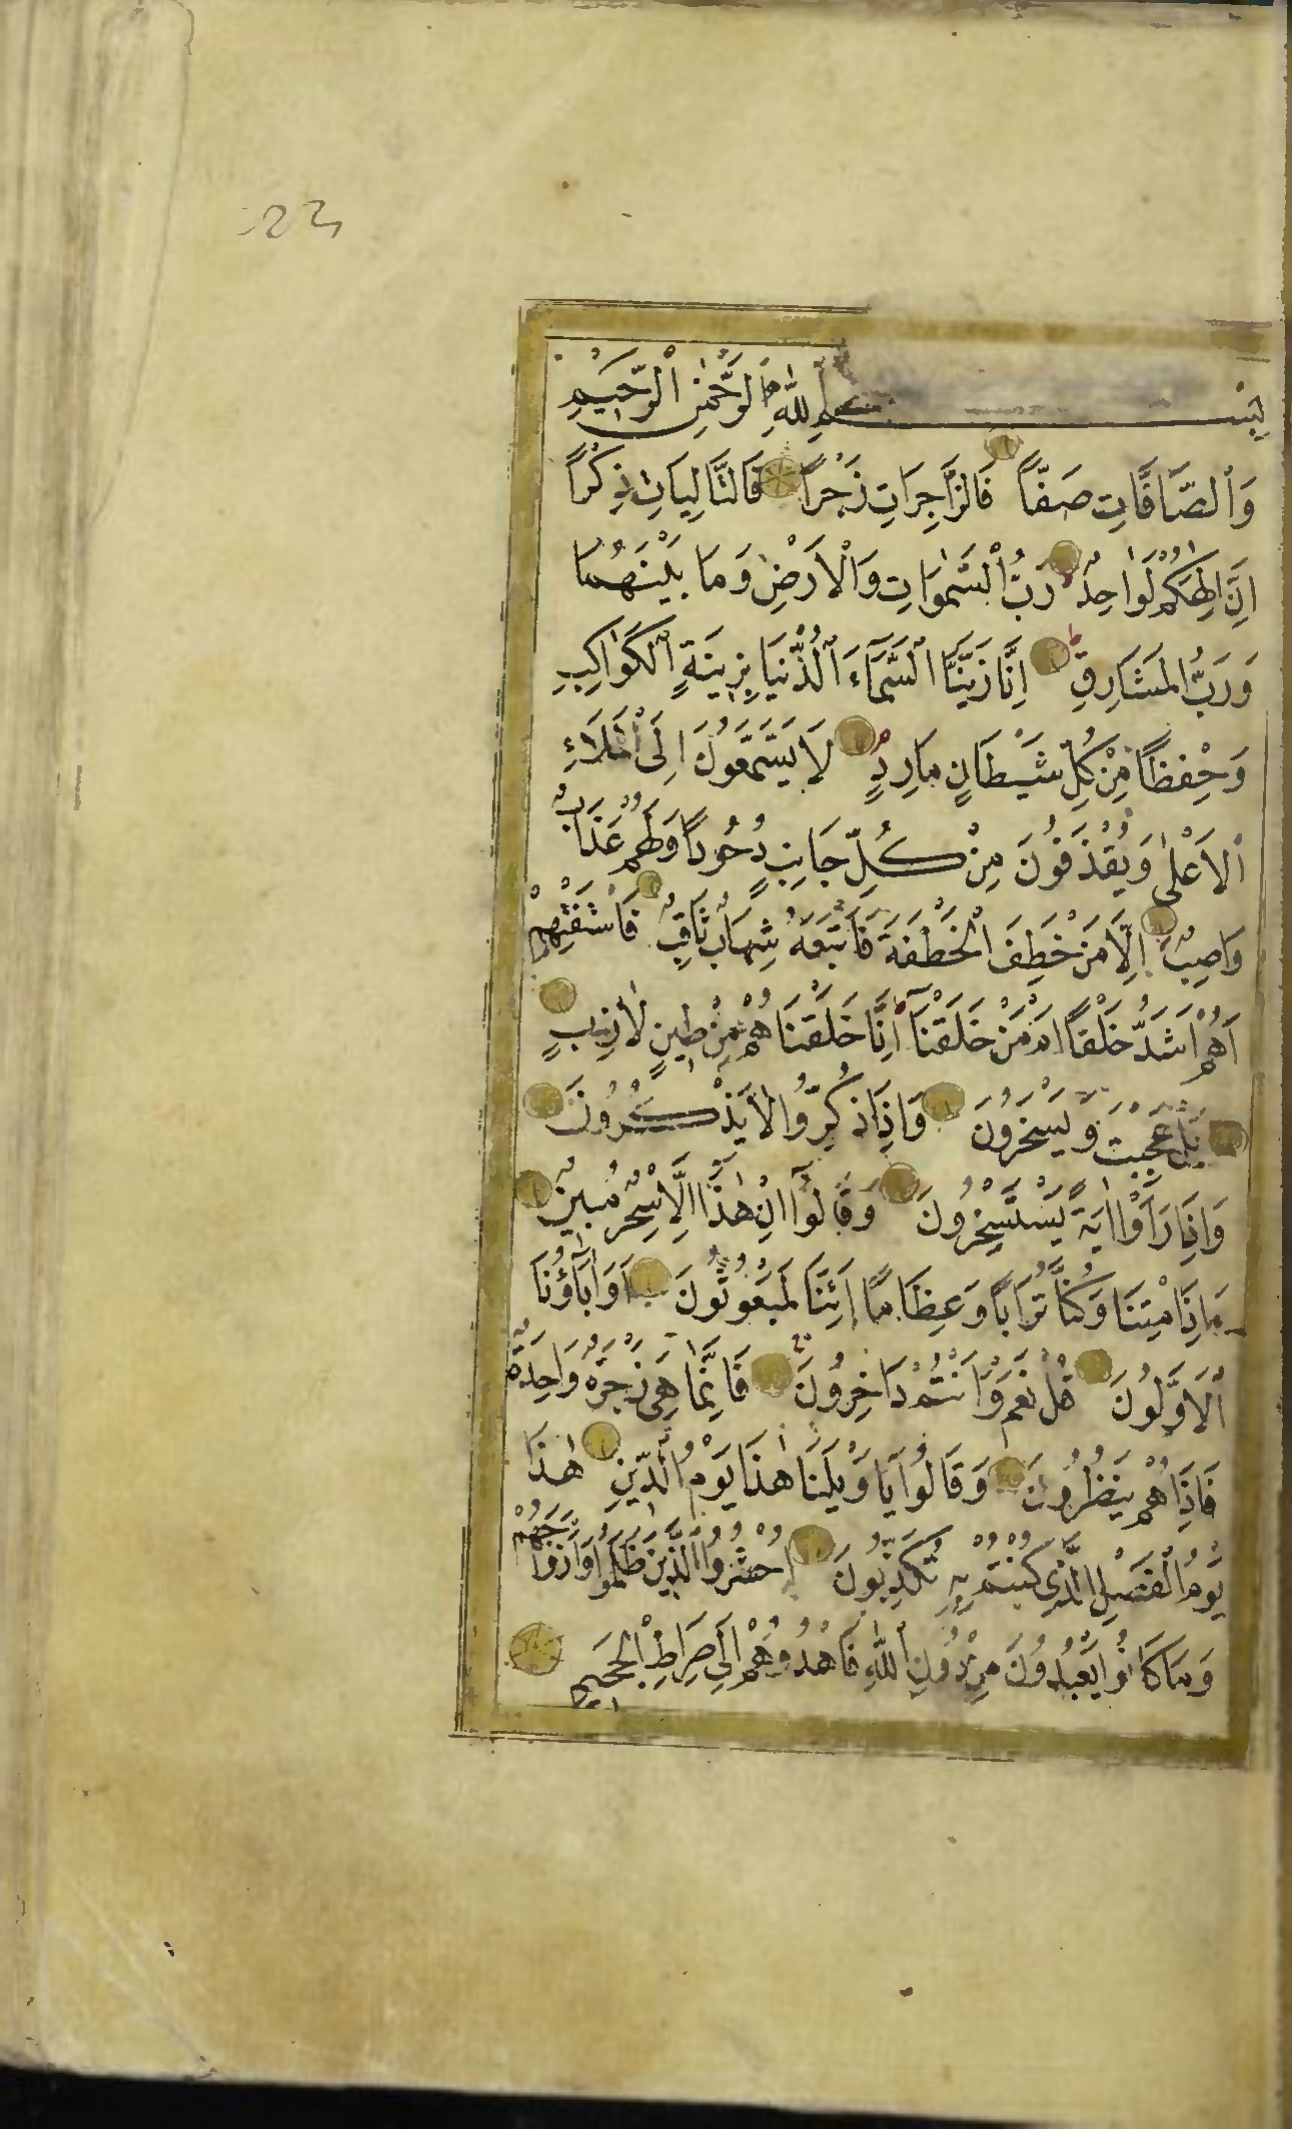 23
بِسْمِ ٱللّٰهِ ٱلرَّحْمٰنِ ٱلرَّحِيمِ
وَٱلصَّافَّاتِ صَفّاً فَالزَّاجِرَاتِ زَجْراً فَالتَّالِيَاتِ ذِكْراً
اِنَّ اِلٰهَكُمْ لَوٰاحِدٌ رَبُّ ٱلسَّمٰوَاتِ وَٱلْاَرْضِ وَمَا بَيْنَهُمَا
وَرَبُّ المَشَارِقِ اِنَّا زَيَّنَّا ٱلسَّمَآءَ ٱلدُّنْيَا بِزِينَةٍ ٱلْكَوٰاكِبِ
وَحِفْظاً مِنْ كُلِّ شَيْطَانٍ مَارِدٍ لَا يَسَّمَّعُونَ اِلَى ٱلْمَلَاءِ
ٱلْاَعْلٰى وَيُقْذَفُونَ مِنْ كُلِّ جَانِبٍ دُحُوراً وَلَهُمْ عَذَابٌ
وَاصِبٌ اِلَّا مَنْ خَطِفَ الْخَطْفَةَ فَاَتْبَعَهُ شِهَابٌ ثَاقِبٌ فَاسْتَفْتِهِمْ
اَهُمْ اَشَدُّ خَلْقاً اَمْ مَنْ خَلَقْنَآ اِنَّا خَلَقْنَاهُمْ مِنْ طِينٍ لَازِبٍ
بَلْ عَجِبْتَ وَيَسْخَرُونَ وَاِذَا ذُكِّرُوا لَا يَذْكُرُونَ
وَاِذَا رَاَوْا اٰيَةً يَسْتَسْخِرُونَ وَقَالُوٓا اِنْ هٰذَٓا اِلَّا سِحْرٌ مُبِينٌ
ءَاِذَا مِتْنَا وَكُنَّا تُرَاباً وَعِظَاماً اَئِنَّا لَمَبْعُوثُونَ اَوَاٰبَآؤُنَا
ٱلْاَوَّلُونَ قُلْ نَعَمْ وَاَنْتُمْ دَاخِرُونَ فَاِنَّمَا هِيَ زَجْرَةٌ وَاحِدَةٌ
فَاِذَا هُمْ يَنْظُرُونَ وَقَالُوا يَا وَيْلَنَا هٰذَا يَوْمُ ٱلدِّينِ هٰذَا
يَوْمُ الْفَصْلِ الَّذِي كُنْتُمْ بِهِ تُكَذِّبُونَ اُحْشُرُوا الَّذِينَ ظَلَمُوا وَاَزْوَاجَهُمْ
وَمَا كَانُوا يَعْبُدُونَ مِنْ دُونِ ٱللّٰهِ فَاهْدُوهُمْ اِلٰى صِرَاطِ الْجَحِيمِ